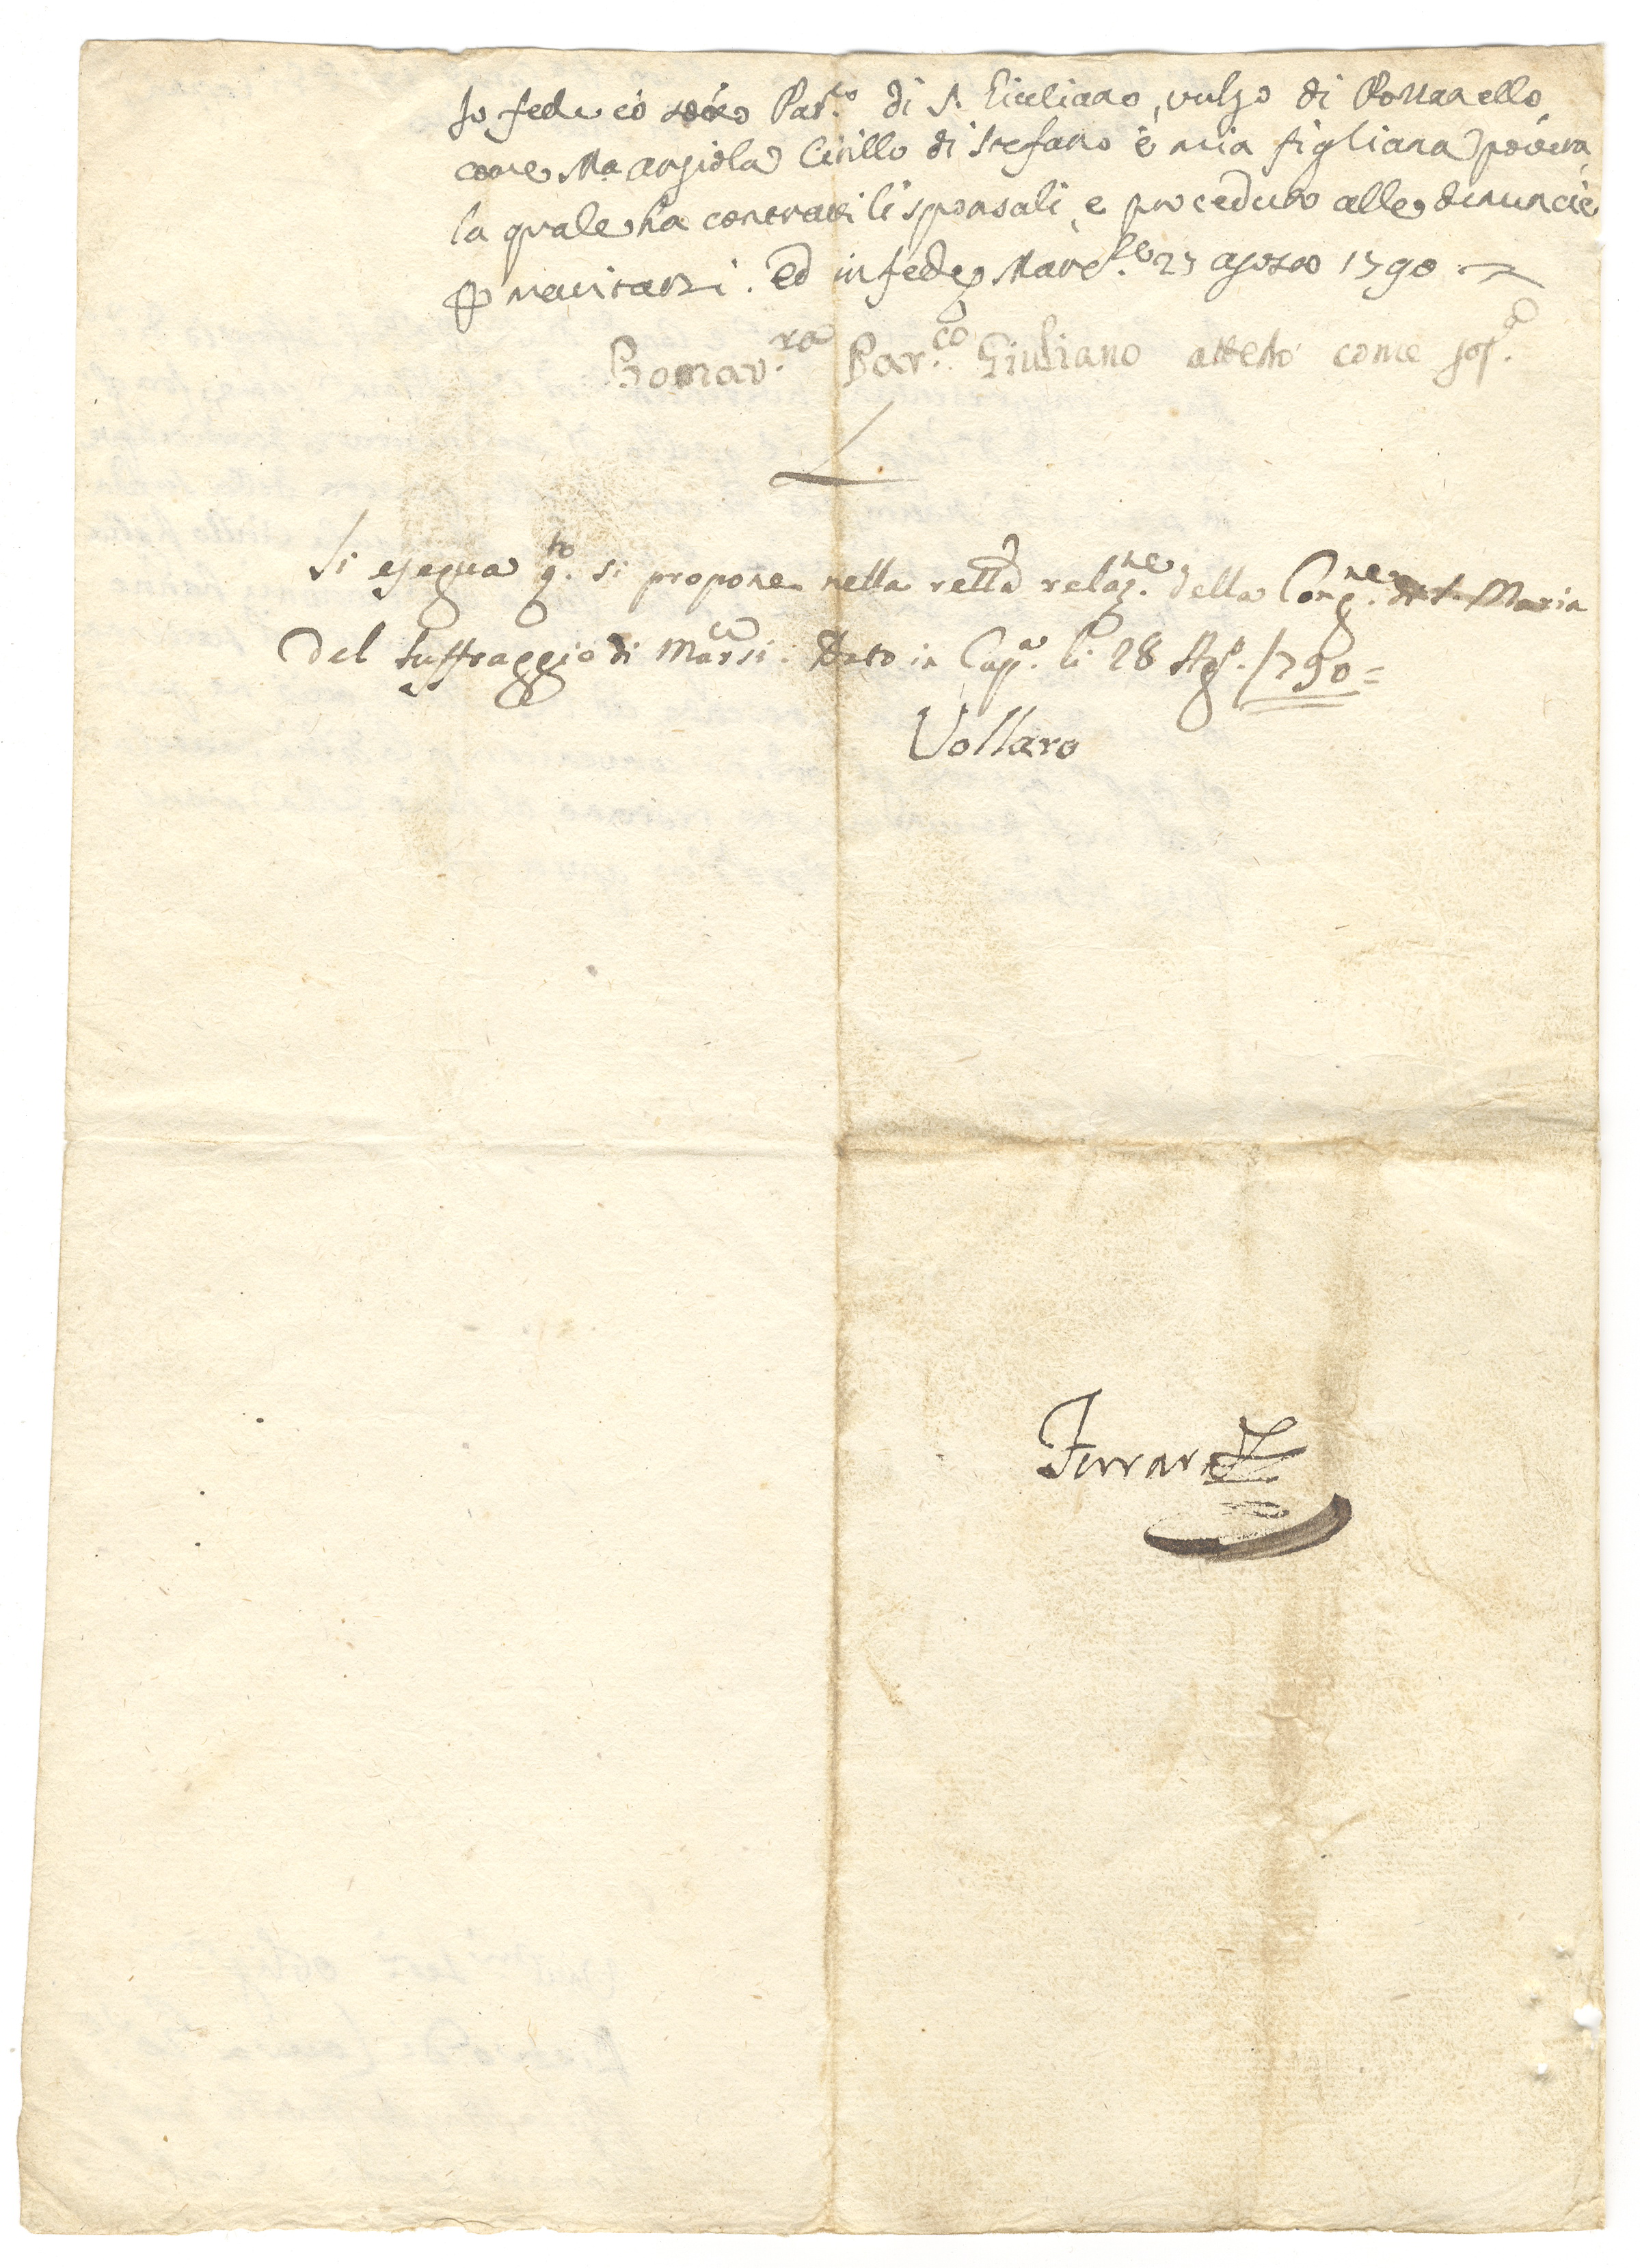 Fo fede io sotto Par.co di S. Giuliano, vulgo di Portanello
come Ma Angiola Cirillo di Stefano è mia figliana povera,
la quale ha contratti li sponsali, e proceduto alle denuncie
ed in fede 23 agosto 1790
Par.co Giuliano attesto come sop.a
Si esegua q.to si propone nella retta relaz.ne della Cong.ne di S. Maria
del Suffraggio di Dato in Cap.a li 28 Ag.o 1790 =
Vollaro
Ferrara